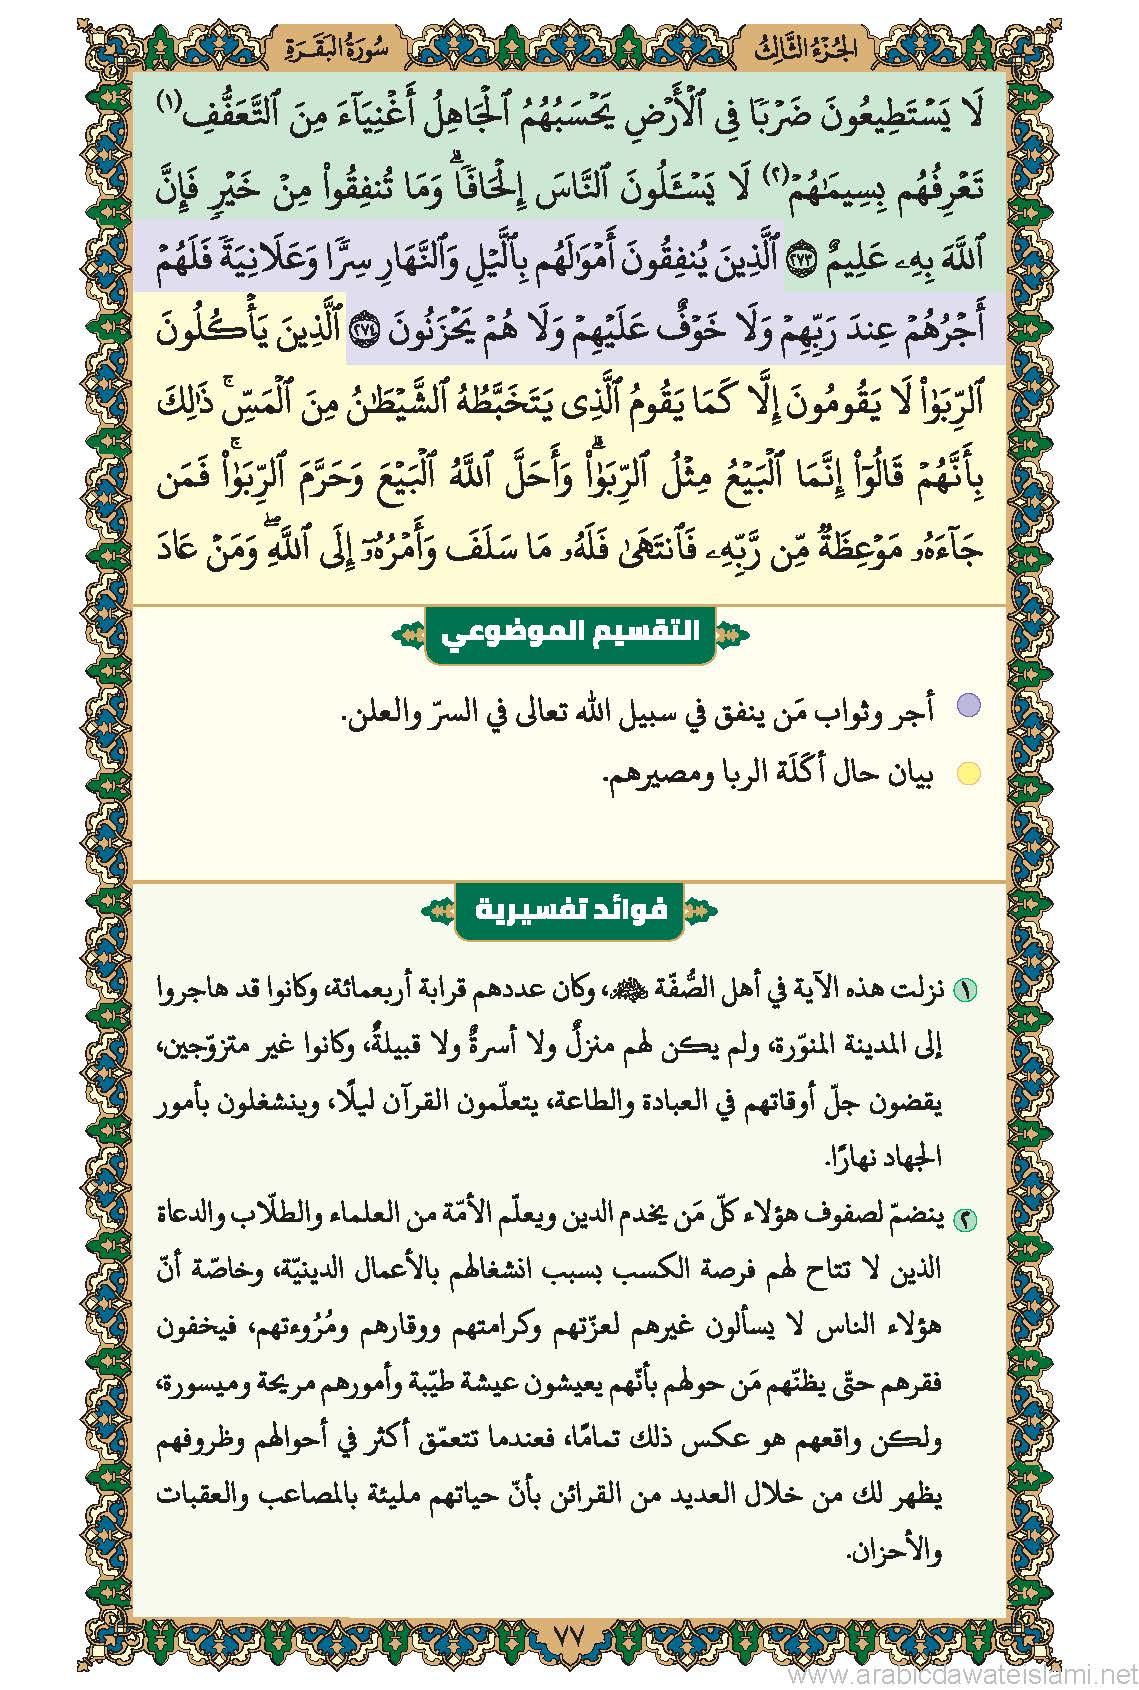 الجُزْءُ الثَّالِثُ
سُورَةُ البَقَرَةِ
لَا يَسْتَطِيعُونَ ضَرْبًا فِى ٱلْأَرْضِ يَحْسَبُهُمُ ٱلْجَاهِلُ أَغْنِيَآءَ مِنَ ٱلتَّعَفُّفِ(١)
تَعْرِفُهُم بِسِيمَـٰهُمْ(٢) لَا يَسْـَٔلُونَ ٱلنَّاسَ إِلْحَافًاۗ وَمَا تُنفِقُوا۟ مِنْ خَيْرٍ فَإِنَّ
ٱللَّهَ بِهِۦ عَلِيمٌ ٢٧٣ ٱلَّذِينَ يُنفِقُونَ أَمْوَٰلَهُم بِٱلَّيْلِ وَٱلنَّهَارِ سِرًّا وَعَلَانِيَةً فَلَهُمْ
أَجْرُهُمْ عِندَ رَبِّهِمْ وَلَا خَوْفٌ عَلَيْهِمْ وَلَا هُمْ يَحْزَنُونَ ٢٧٤ ٱلَّذِينَ يَأْكُلُونَ
ٱلرِّبَوٰا۟ لَا يَقُومُونَ إِلَّا كَمَا يَقُومُ ٱلَّذِى يَتَخَبَّطُهُ ٱلشَّيْطَـٰنُ مِنَ ٱلْمَسِّۚ ذَٰلِكَ
بِأَنَّهُمْ قَالُوٓا۟ إِنَّمَا ٱلْبَيْعُ مِثْلُ ٱلرِّبَوٰا۟ۗ وَأَحَلَّ ٱللَّهُ ٱلْبَيْعَ وَحَرَّمَ ٱلرِّبَوٰا۟ۚ فَمَن
جَآءَهُۥ مَوْعِظَةٌ مِّن رَّبِّهِۦ فَٱنتَهَىٰ فَلَهُۥ مَا سَلَفَ وَأَمْرُهُۥٓ إِلَى ٱللَّهِۖ وَمَنْ عَادَ
التقسيم الموضوعي
أجر وثواب مَن ينفق في سبيل الله تعالى في السرّ والعلن.
بيان حال أكَلَة الربا ومصيرهم.
فوائد تفسيرية
١ نزلت هذه الآية في أهل الصُّفّة ، وكان عددهم قرابة أربعمائة، وكانوا قد هاجروا
إلى المدينة المنوّرة، ولم يكن لهم منزلٌ ولا أسرةٌ ولا قبيلةٌ، وكانوا غير متزوّجين،
يقضون جلّ أوقاتهم في العبادة والطاعة، يتعلّمون القرآن ليلًا، وينشغلون بأمور
الجهاد نهارًا.
٢ ينضمّ لصفوف هؤلاء كلّ مَن يخدم الدين ويعلّم الأمّة من العلماء والطلّاب والدعاة
الذين لا تتاح لهم فرصة الكسب بسبب انشغالهم بالأعمال الدينيّة، وخاصّة أنّ
هؤلاء الناس لا يسألون غيرهم لعزّتهم وكرامتهم ووقارهم ومُرُوءتهم، فيخفون
فقرهم حتّى يظنّهم مَن حولهم بأنّهم يعيشون عيشة طيّبة وأمورهم مريحة وميسورة،
ولكن واقعهم هو عكس ذلك تمامًا، فعندما تتعمّق أكثر في أحوالهم وظروفهم
يظهر لك من خلال العديد من القرائن بأنّ حياتهم مليئة بالمصاعب والعقبات
والأحزان.
٧٧
www.arabicdawateislami.net